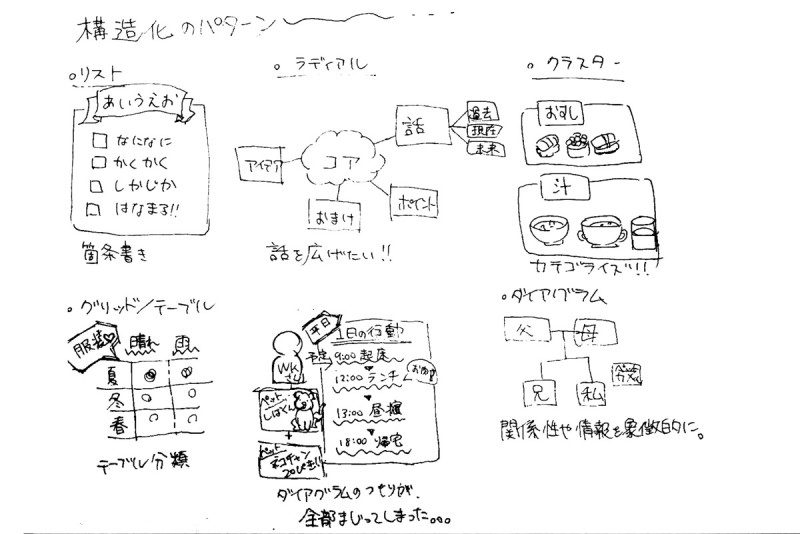 構造化のパターン
○リスト
あいうえお
なになに
かくかく
しかじか
はなまる!!
箇条書き
○ラディアル
コア
アイデア
話
過去
現在
未来
おまけ
ポイント
話を広げたい!!
○クラスター
おすし
汁
カテゴライズ!!
○グリッド/テーブル
服装♡
晴れ
雨
夏
冬
春
テーブル分類
平日
WKさん
予定
1日の行動
9:00 起床
12:00 ランチ
13:00 昼寝
18:00 帰宅
ペット
しばくん
+
ペット
ネコチャン
20ぴき!!
ダイアグラムのつもりが、
全部まじってしまった。。。
○ダイアグラム
父
母
兄
私
関係性や情報を象徴的に。